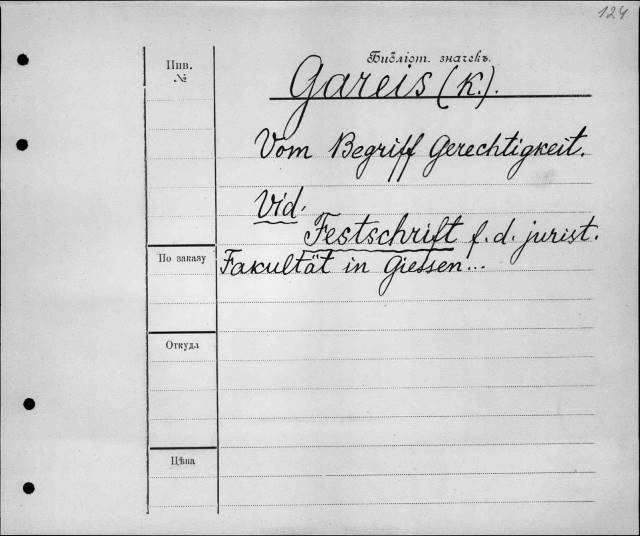 124
Библіот. значекъ.
Инв.
№
Gareis (K.).
Vom Begriff Gerechtigkeit.
Vid.
Festschrift f. d. jurist.
По заказу
Fakultät in Giessen...
Откуда
Цѣна